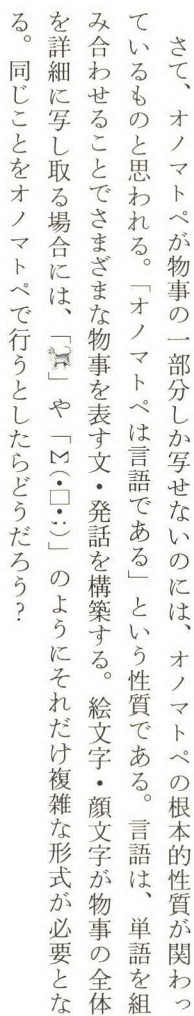 さて、オノマトペが物事の一部分しか写せないのには、オノマトペの根本的性質が関わっ
ているものと思われる。「オノマトペは言語である」という性質である。言語は、単語を組
み合わせることでさまざまな物事を表す文・発話を構築する。絵文字・顔文字が物事の全体
を詳細に写し取る場合には、「🐈」や「Σ(・□・;)」のようにそれだけ複雑な形式が必要とな
る。同じことをオノマトペで行うとしたらどうだろう？